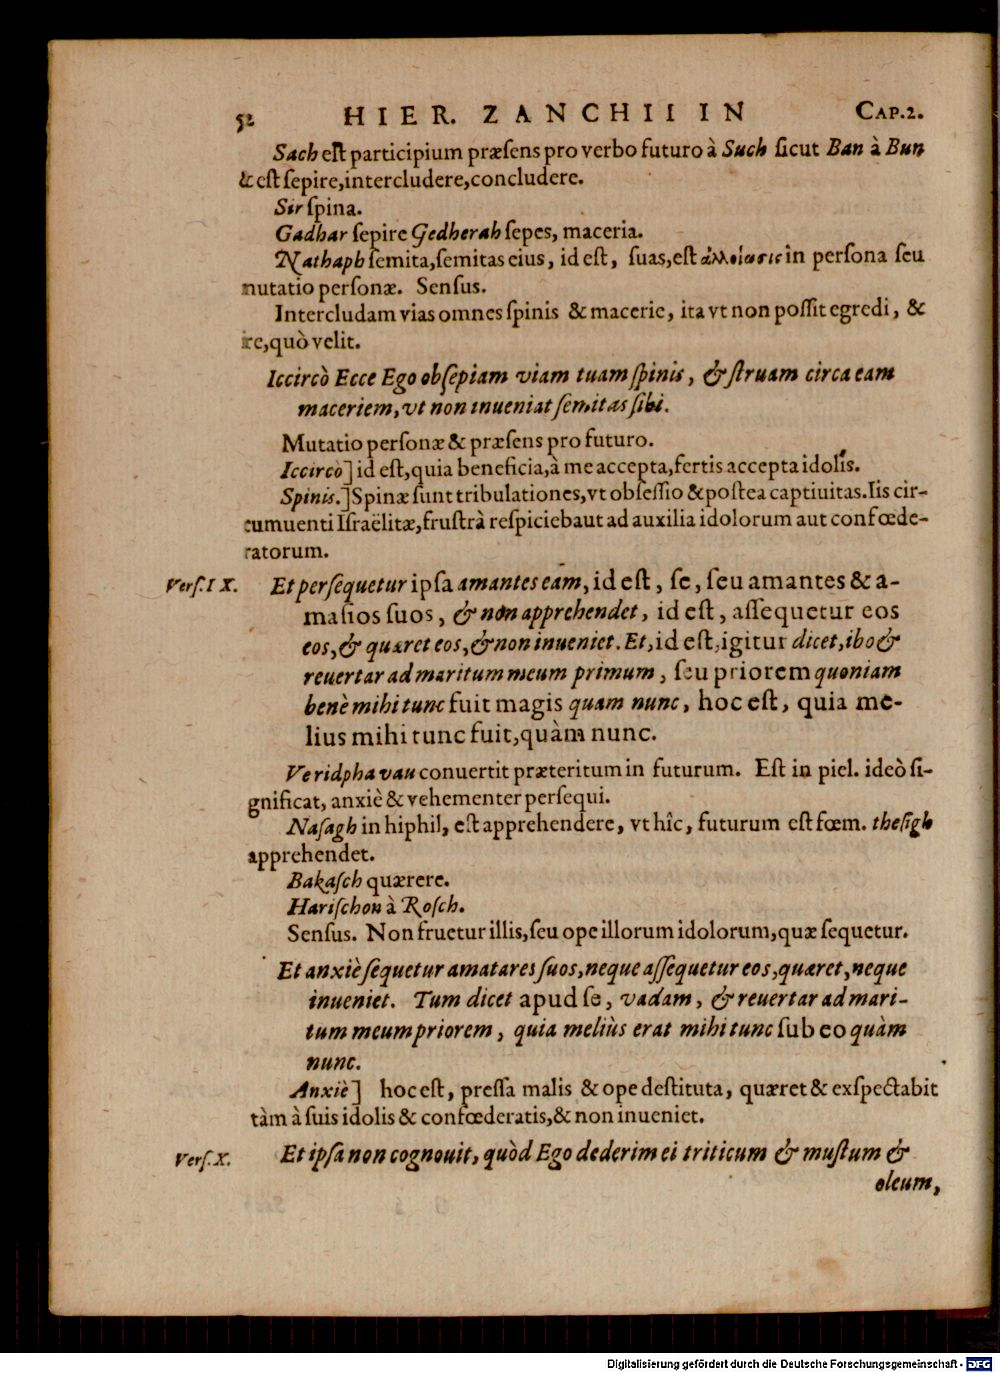 52 HIER. ZANCHII IN CAP.2.
Sach est participium præsens pro verbo futuro à Such sicut Ban à Bun
& est sepire, intercludere, concludere.
Sir spina.
Gadhar sepire Gedherah sepes, maceria.
Nathaph semita, semitas eius, id est, suas, est ἀλλοίωσις in persona seu
mutatio personæ. Sensus.
Intercludam vias omnes spinis & macerie, ita vt non possit egredi, &
ire, quò velit.
Iccircò Ecce Ego obsepiam viam tuam spinis, & struam circa eam
maceriem, vt non inueniat semitas sibi.
Mutatio personæ & præsens pro futuro.
Iccircò] id est, quia beneficia, à me accepta, fertis accepta idolis.
Spinis.] Spinæ sunt tribulationes, vt obsessio & postea captiuitas. Iis cir-
cumuenti Israëlitæ, frustrà respiciebaut ad auxilia idolorum aut confœde-
ratorum.
Vers. IX. Et persequetur ipsa amantes eam, id est, se, seu amantes & a-
masios suos, & non apprehendet, id est, assequetur eos
eos, & quæret eos, & non inueniet. Et, id est, igitur dicet, ibo &
reuertar ad maritum meum primum, seu priorem quoniam
benè mihi tunc fuit magis quam nunc, hoc est, quia me-
lius mihi tunc fuit, quàm nunc.
Veridpha vau conuertit præteritum in futurum. Est in piel. ideò si-
gnificat, anxiè & vehementer persequi.
Nasagh in hiphil, est apprehendere, vt hîc, futurum est fœm. thesigh
apprehendet.
Bakasch quærere.
Harischon à Rosch.
Sensus. Non fruetur illis, seu ope illorum idolorum, quæ sequetur.
Et anxiè sequetur amatares suos, neque assequetur eos, quæret, neque
inueniet. Tum dicet apud se, vadam, & reuertar ad mari-
tum meum priorem, quia meliùs erat mihi tunc sub eo quàm
nunc.
Anxiè] hoc est, pressa malis & ope destituta, quæret & exspectabit
tàm à suis idolis & confœderatis, & non inueniet.
Vers. X. Et ipsa non cognouit, quòd Ego dederim ei triticum & mustum &
oleum,
Digitalisierung gefördert durch die Deutsche Forschungsgemeinschaft - DFG